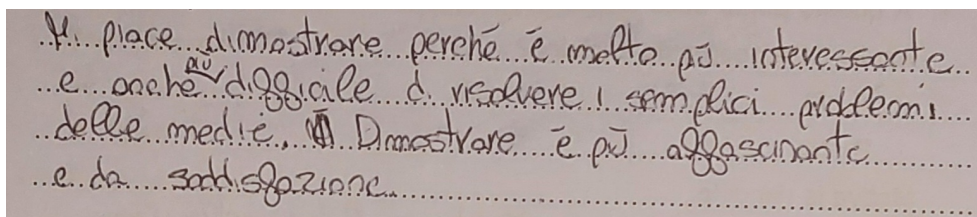 Mi piace dimostrare perché è molto più interessante
e anche più difficile di risolvere i semplici problemi
delle medie. Dimostrare è più affascinante
e da soddisfazione